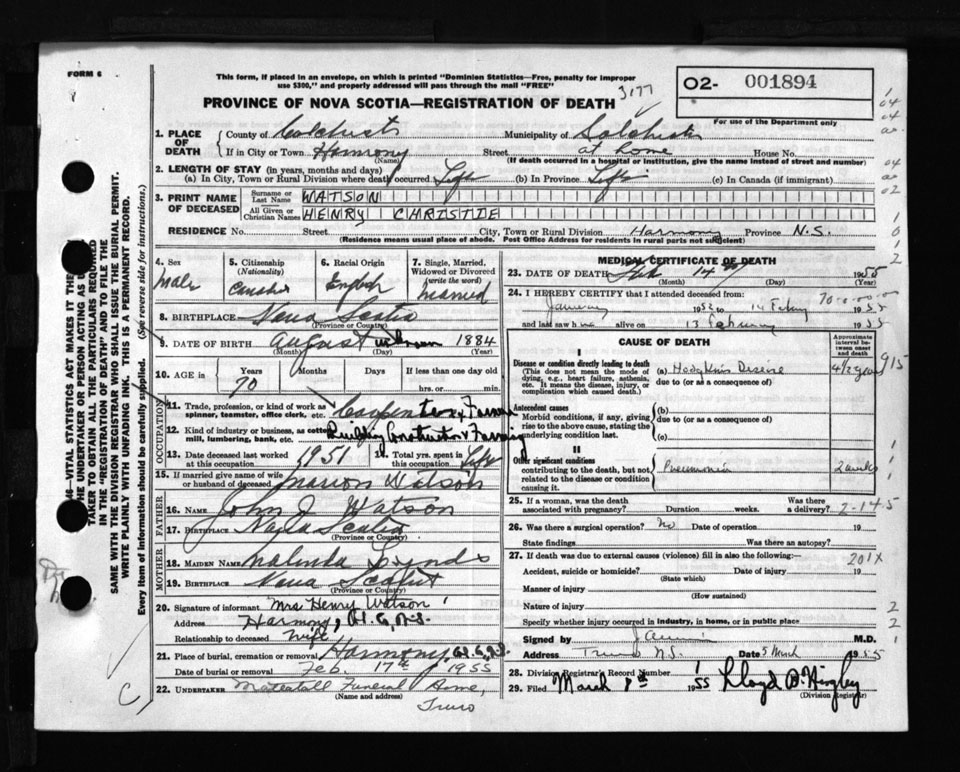 FORM 6
This form, if placed in an envelope, on which is printed "Dominion Statistics—Free, penalty for improper
use $300," and properly addressed will pass through the mail "FREE"
3177
O2- 001894
For use of the Department only
PROVINCE OF NOVA SCOTIA—REGISTRATION OF DEATH
1. PLACE OF DEATH
County of Colchester Municipality of Colchester
If in City or Town Harmony (Name) Street at home House No.
(If death occurred in a hospital or institution, give the name instead of street and number)
2. LENGTH OF STAY (in years, months and days)
(a) In City, Town or Rural Division where death occurred Life (b) In Province Life (c) In Canada (if immigrant)
3. PRINT NAME OF DECEASED
Surname or Last Name WATSON
All Given or Christian Names HENRY CHRISTIE
RESIDENCE No. Street City, Town or Rural Division Harmony Province N.S.
(Residence means usual place of abode. Post Office Address for residents in rural parts not sufficient)
4. Sex Male
5. Citizenship (Nationality)
6. Racial Origin English
7. Single, Married, Widowed or Divorced (write the word) Married
8. BIRTHPLACE Nova Scotia
(Province or Country)
9. DATE OF BIRTH August unknown 1884
(Month) (Day) (Year)
10. AGE in Years 70 Months Days If less than one day
hrs. or min.
OCCUPATION
11. Trade, profession, or kind of work as spinner, teamster, office clerk, etc. Carpenter & Farmer
12. Kind of industry or business, as cotton mill, lumbering, bank, etc. Building Construction & Farming
13. Date deceased last worked at this occupation 1951
14. Total yrs. spent in this occupation Life
15. If married give name of wife or husband of deceased Marion Watson
FATHER
16. Name John J. Watson
17. Birthplace Nova Scotia
(Province or Country)
MOTHER
18. MAIDEN NAME Malinda
19. BIRTHPLACE Nova Scotia
(Province or Country)
20. Signature of informant Mrs Henry Watson
Address Harmony,
Relationship to deceased Wife
21. Place of burial, cremation or removal Harmony,
Date of burial or removal Feb. 17th 1955
22. UNDERTAKER Mattatall Funeral Home,
(Name and address) Truro
MEDICAL CERTIFICATE OF DEATH
23. DATE OF DEATH Feb 14 1955
(Month) (Day) (Year)
24. I HEREBY CERTIFY that I attended deceased from:
January 1952 to 14 Feby 1955
and last saw him alive on 13 February 1955
CAUSE OF DEATH
Approximate interval between onset and death
I
Disease or condition directly leading to death
(This does not mean the mode of dying, e.g., heart failure, asthenia, etc. It means the disease, injury, or complication which caused death.)
(a) Hodgkins Disease 4/2 years
due to (or as a consequence of)
Antecedent causes
Morbid conditions, if any, giving rise to the above cause, stating the underlying condition last.
(b)
due to (or as a consequence of)
(c)
II
Other significant conditions
contributing to the death, but not related to the disease or condition causing it.
Pneumonia 2 weeks
25. If a woman, was the death associated with pregnancy? Duration weeks. Was there a delivery?
2-14-5
26. Was there a surgical operation? No Date of operation 19
State findings Was there an autopsy?
27. If death was due to external causes (violence) fill in also the following:—
201X
Accident, suicide or homicide? Date of injury 19
(State which)
Manner of injury
(How sustained)
Nature of injury
Specify whether injury occurred in industry, in home, or in public place
Signed by M.D.
Address Truro N.S. Date 5 March 1955
28. Division Registrar's Record Number 1
29. Filed March 8th 1955 Lloyd B. Hingley
(Division Registrar)
SAME WITH THE DIVISION REGISTRAR WHO SHALL ISSUE THE BURIAL PERMIT.
WRITE PLAINLY WITH UNFADING INK. THIS IS A PERMANENT RECORD.
Every item of information should be carefully supplied. (See reverse side for instructions.)